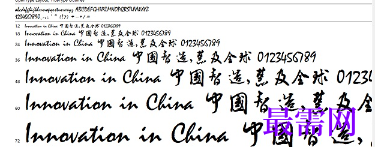 abcdefghijklmnopqrstuvwxyz ABCDEFGHIJKLMNOPQRSTUVWXYZ
Innovation in China 中国智造,慧及全球 0123456789
Innovation in China 中国智造,慧及全球 0123456789
Innovation in China 中国智造,慧及全球 0123456789
36 Innovation in China 中国智造,慧及全球 0123456789
48 Innovation in China 中国智造,慧及全球 0123
60 Innovation in China 中国智造,慧及全
72 Innovation in China 中国智造,
最需网